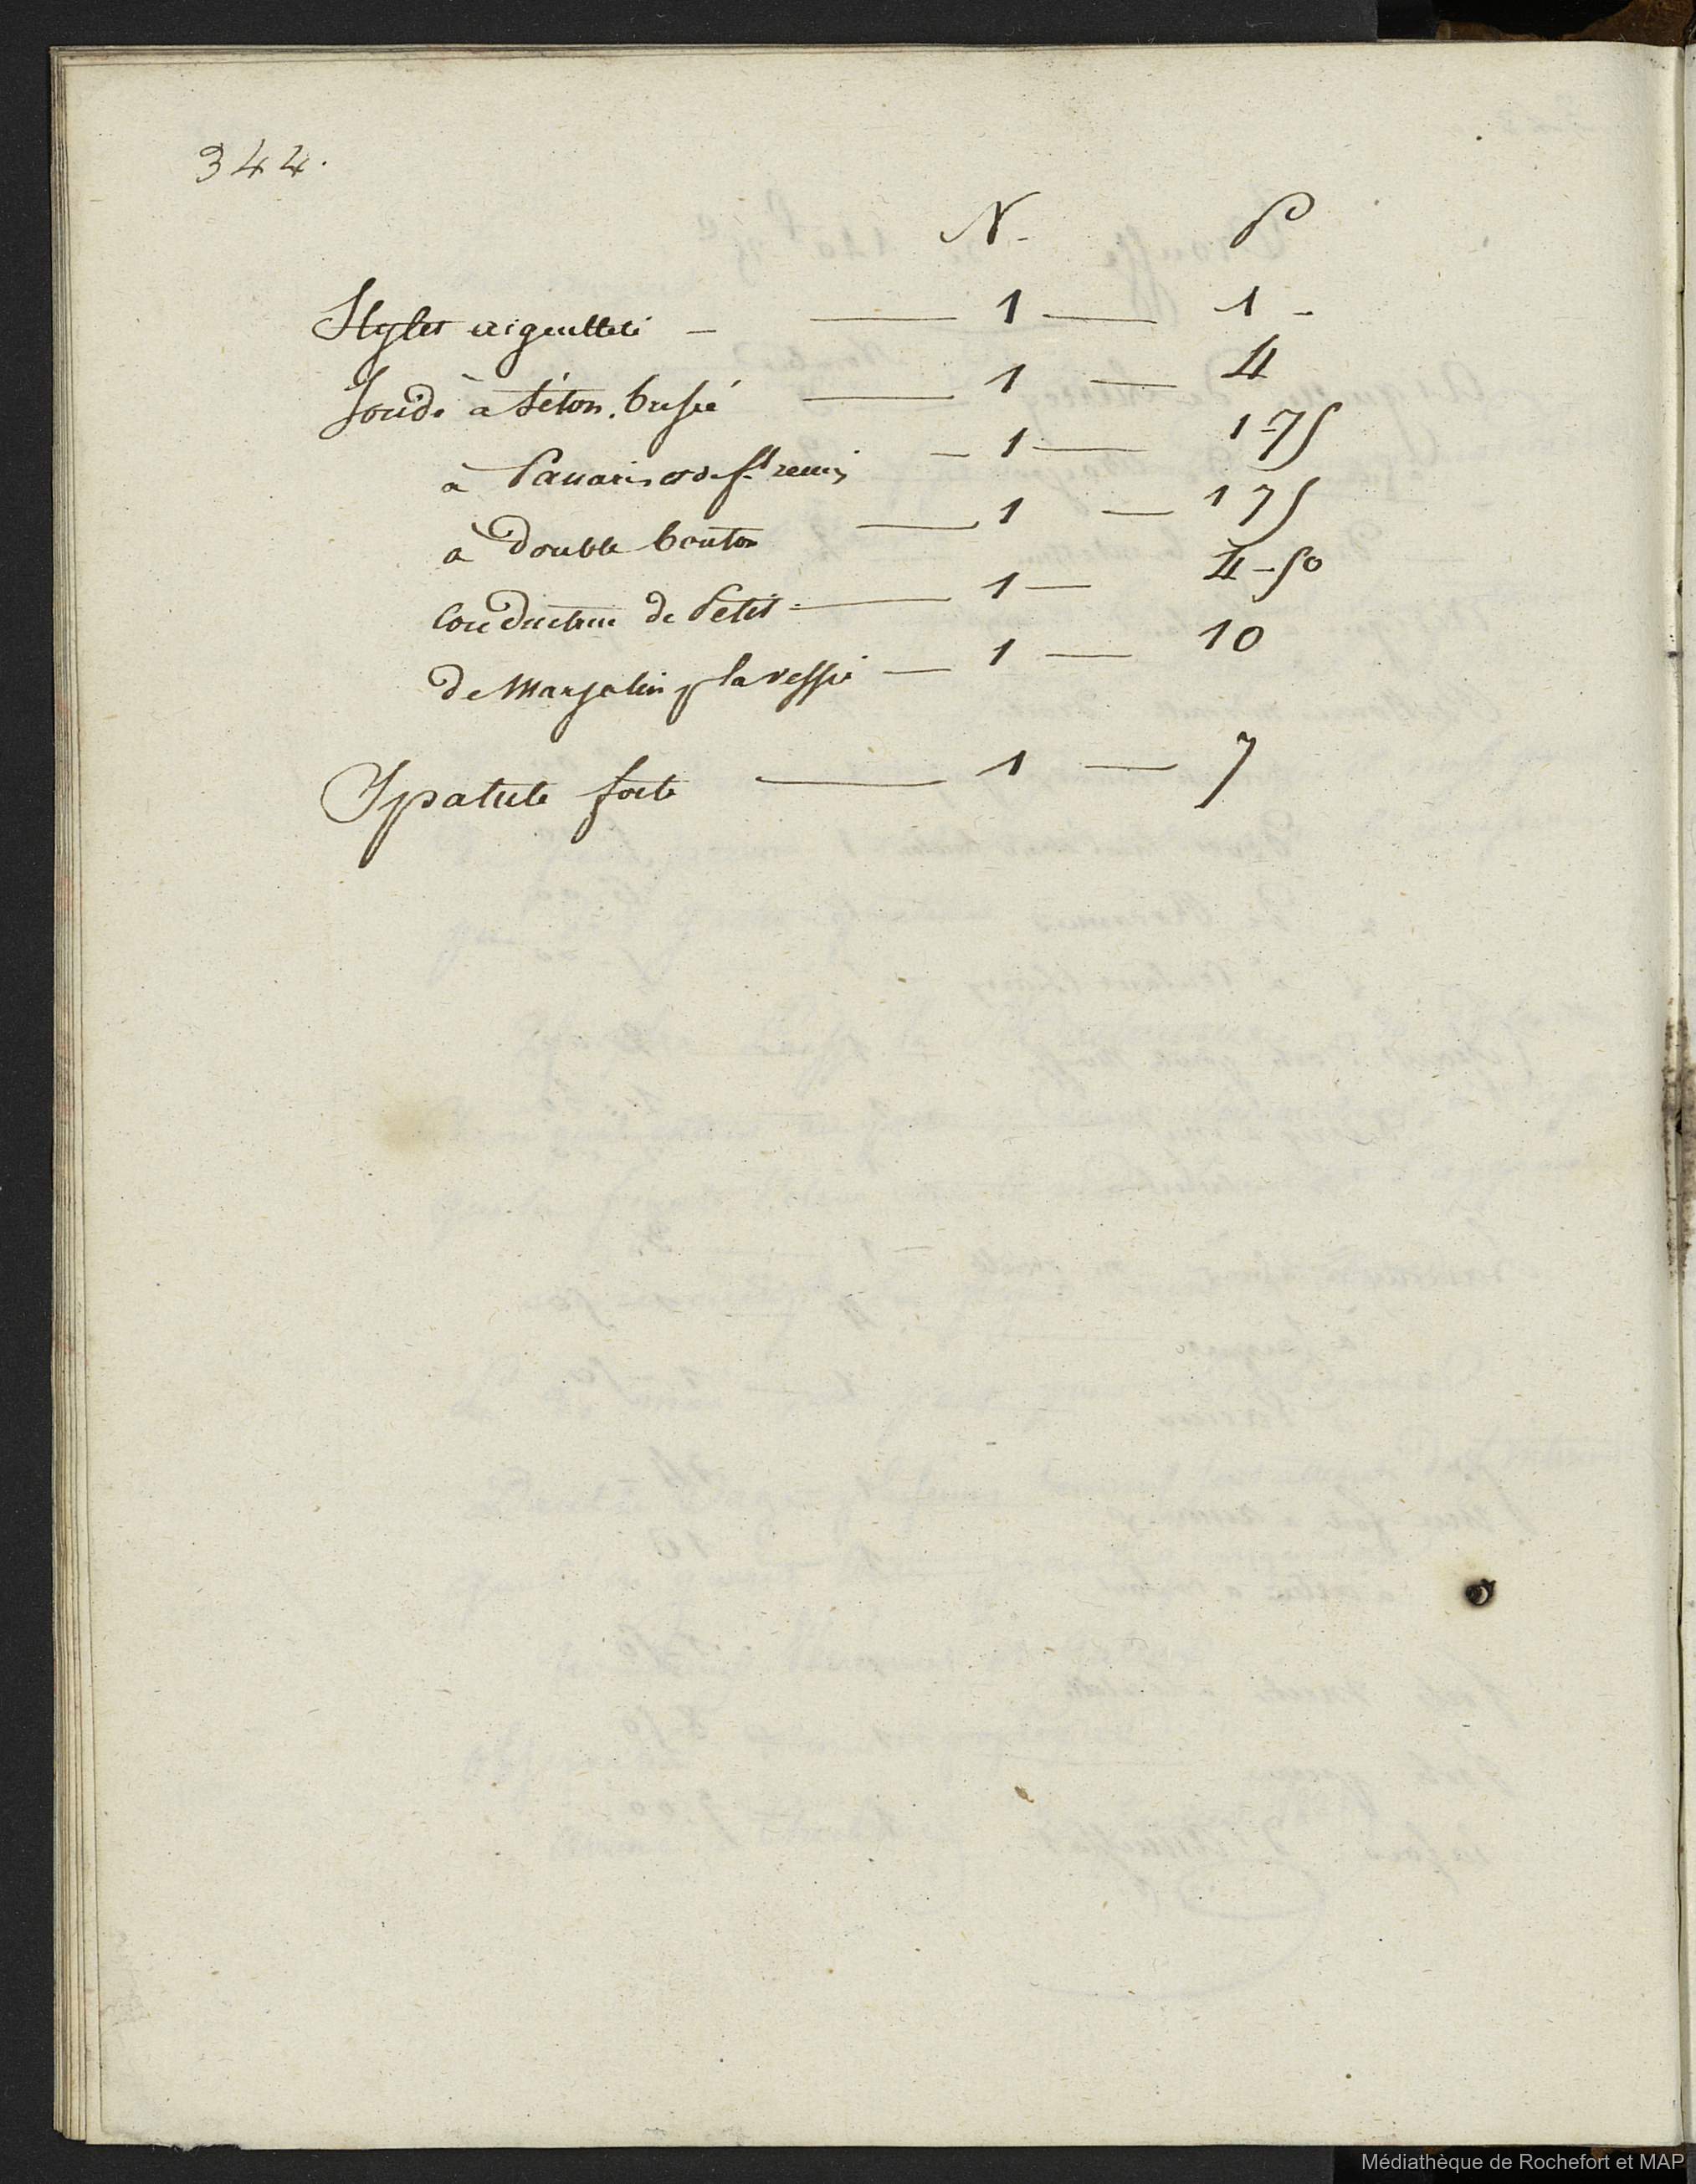 344.
N. P
Stylet aiguilleté — — 1 — 1 -
Sonde à séton, brisée — 1 — 4
à Panaris — 1 — 1-75
à double bouton — 1 — 1 75
Conducteur de Petit — 1 — 4-50
de Marjolin pr la vessie — 1 — 10
Spatule forte — 1 — 7
Médiathèque de Rochefort et MAP